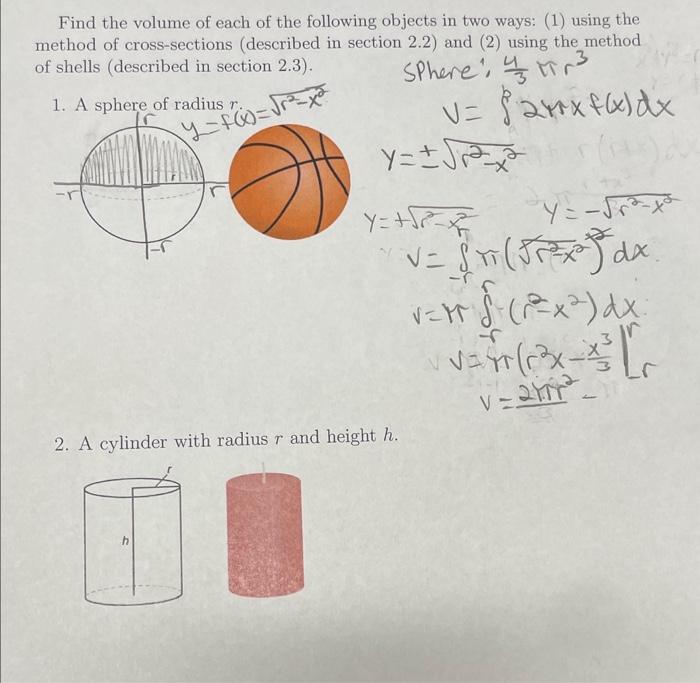 Find the volume of each of the following objects in two ways: (1) using the
method of cross-sections (described in section 2.2) and (2) using the method
of shells (described in section 2.3).
Sphere: 4/3 πr³
1. A sphere of radius r.
y=f(x)=√r²-x²
V= ∫ 2πx f(x) dx
r
-r
r
-r
y=±√r²-x²
y=+√r²-x²
y=-√r²-x²
V= ∫_{-r}^{r} π(√r²-x²)² dx
V=π ∫_{-r}^{r} (r²-x²) dx
V=π(r²x - x³/3 |_{-r}^{r}
V=2πr² -
2. A cylinder with radius r and height h.
r
h